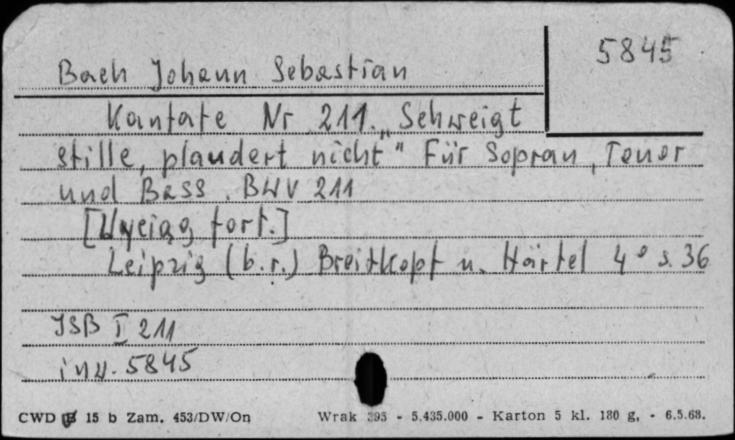 5845
Bach Johann Sebastian
Kantate Nr 211. „Schweigt
stille, plaudert nicht" Für Sopran, Tenor
und Bass. BWV 211
[Wyciąg fort.]
Leipzig (b.r.) Breitkopf u. Härtel 4° s. 36
JSB I 211
inw. 5845
CWD 15 b Zam. 453/DW/On Wrak 395 - 5.435.000 - Karton 5 kl. 180 g, - 6.5.68.